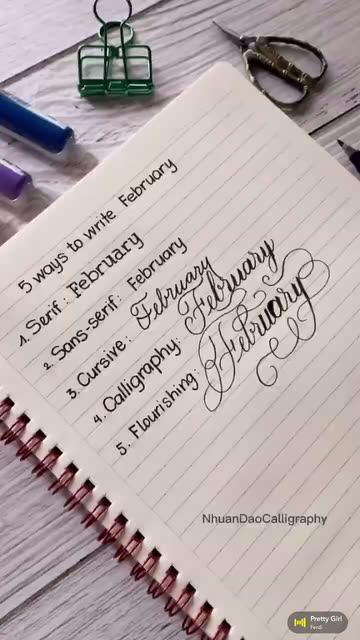 5 ways to write February
1. Serif: February
2. Sans-serif: February
3. Cursive: February
4. Calligraphy: February
5. Flourishing: February
NhuanDaoCalligraphy
Pretty Girl
Ferdi